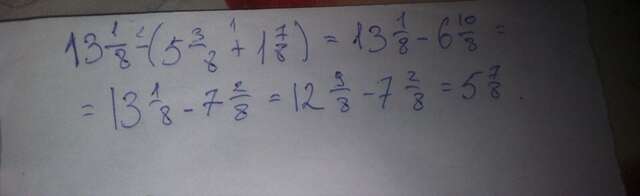 13 1/8 - (5 3/8 + 1 7/8) = 13 1/8 - 6 10/8 =
= 13 1/8 - 7 2/8 = 12 9/8 - 7 2/8 = 5 7/8.